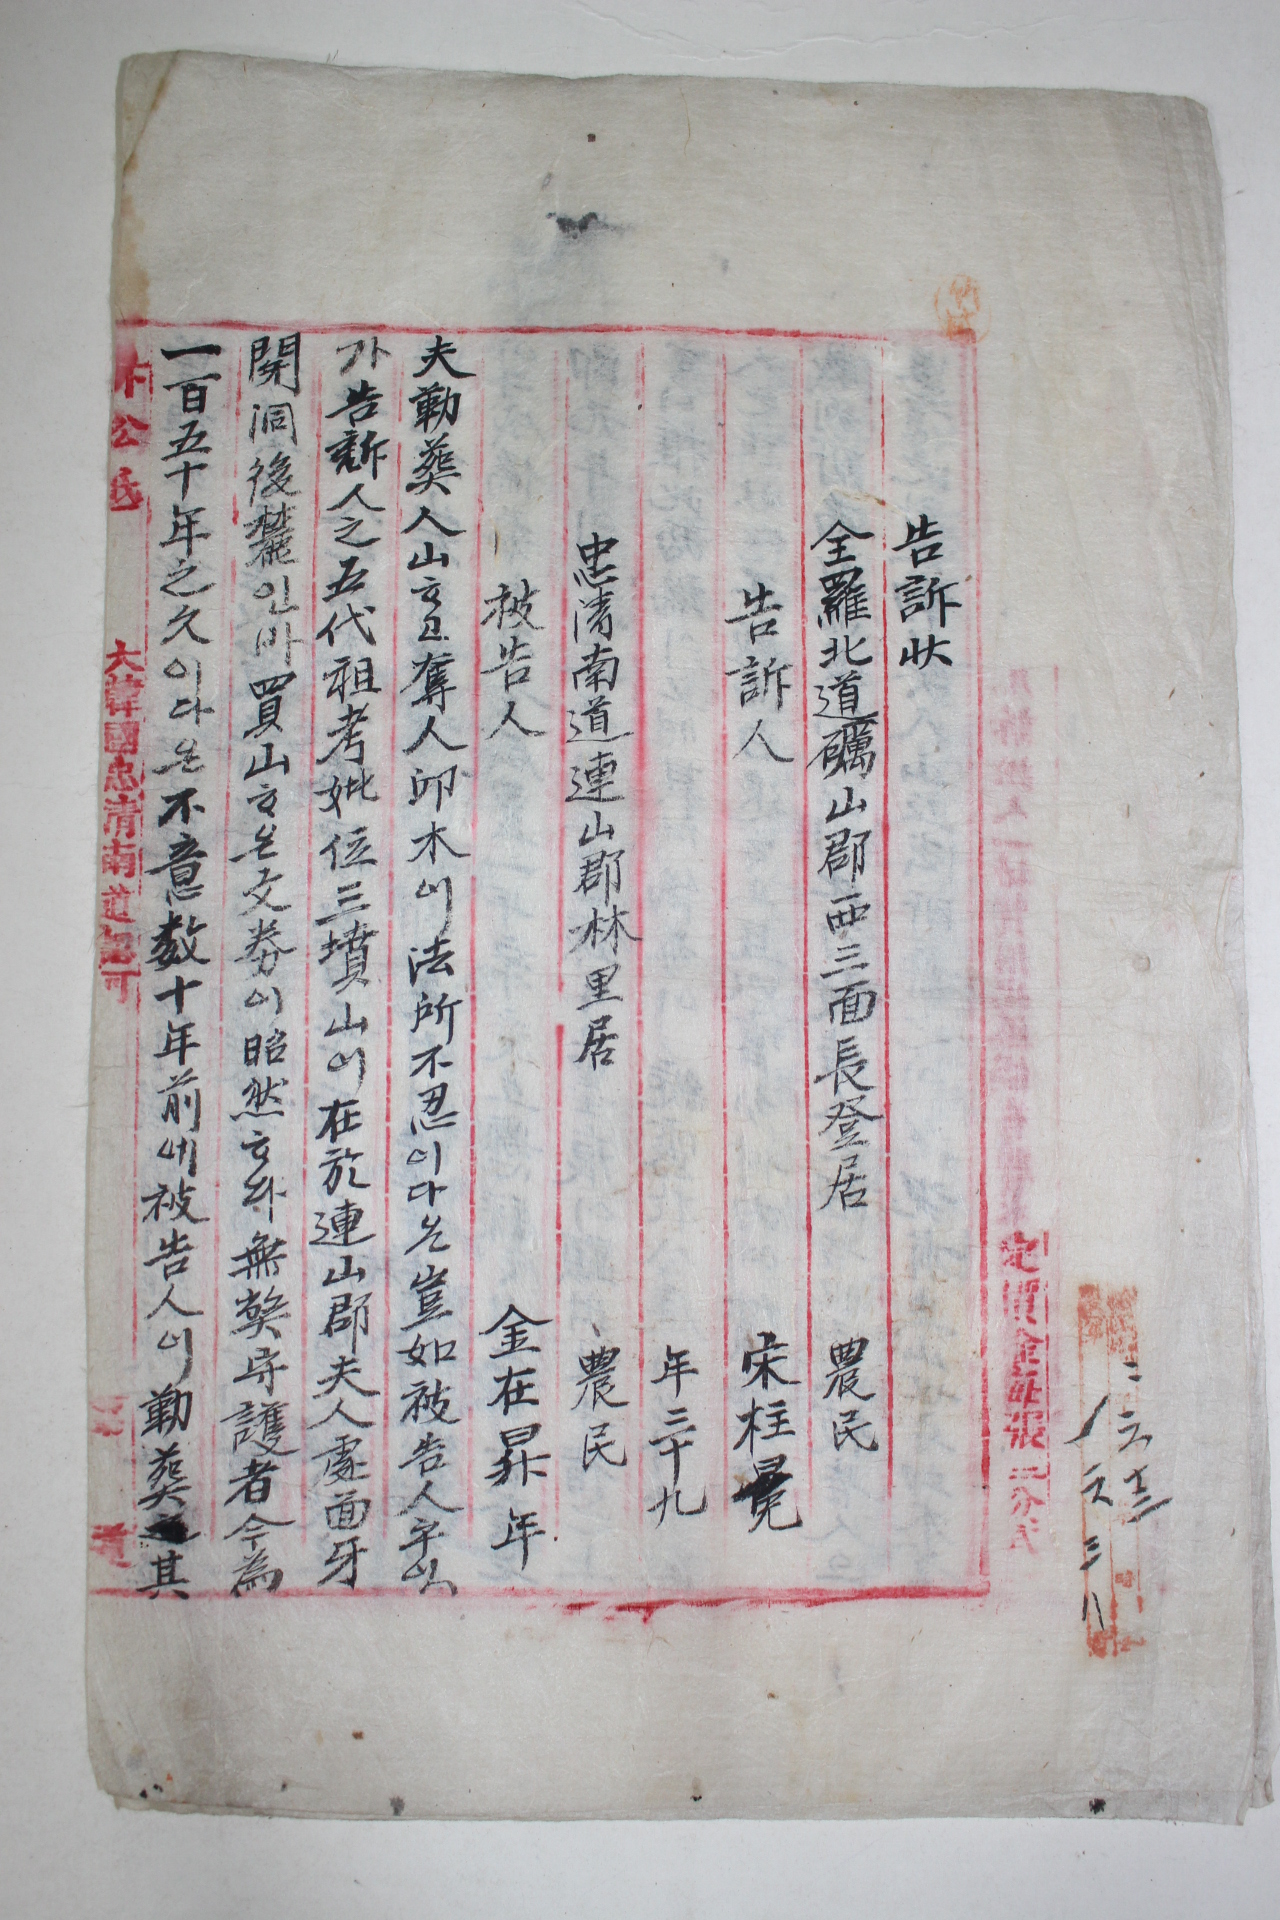 告訴狀
全羅北道礪山郡西三面長登居 農民
告訴人 宋柱冕
年三十九
忠清南道連山郡林里居 農民
被告人 金在昇 年
夫勒葬人山ᄒᆞ고奪人邱木이法所不忍이다온豈如被告人乎잇
가告訴人之五代祖考妣位三墳山이在於連山郡夫人處面牙
開洞後麓인바買山ᄒᆞ온文券이昭然ᄒᆞ와無弊守護者今為
一百五十年之久이다온不意數十年前에被告人이勒葬其
定價金每張二分式
公紙
大韓國忠清南道認可